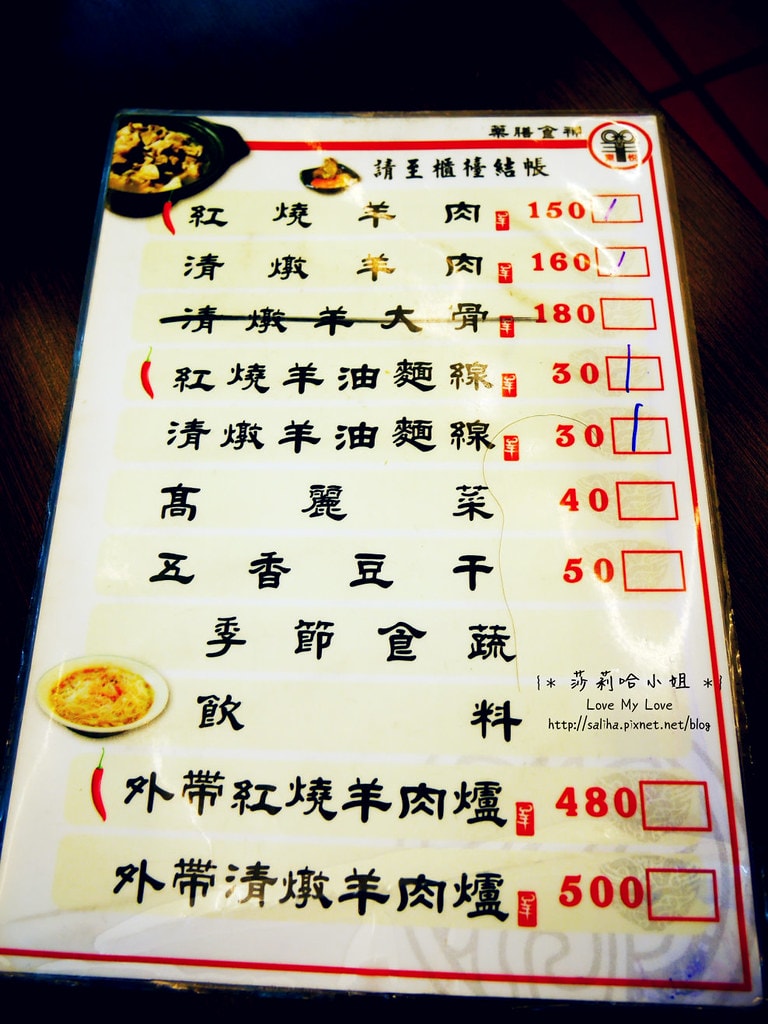 藥膳食補
請至櫃檯結帳
紅燒羊肉 150
清燉羊肉 160
清燉羊大骨 180
紅燒羊油麵線 30
清燉羊油麵線 30
高麗菜 40
五香豆干 50
季節食蔬
飲料
{* 莎莉哈小姐 *}
Love My Love
http://saliha.pixnet.net/blog
外帶紅燒羊肉爐 480
外帶清燉羊肉爐 500